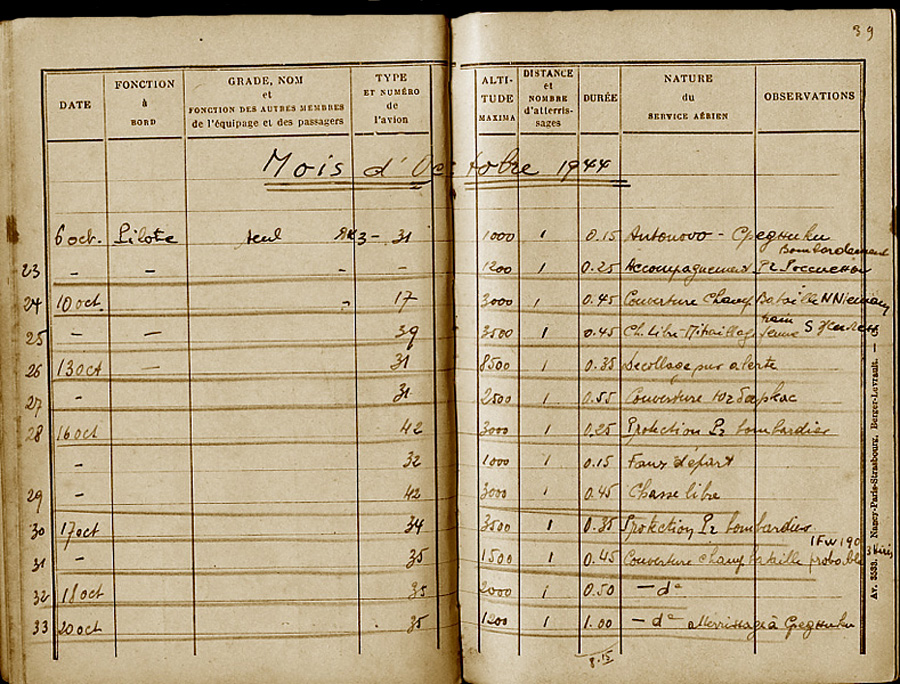 39
DATE FONCTION à BORD GRADE, NOM et FONCTION DES AUTRES MEMBRES de l'équipage et des passagers TYPE ET NUMÉRO de l'avion ALTITUDE MAXIMA DISTANCE et NOMBRE d'atterrissages DURÉE NATURE du SERVICE AÉRIEN OBSERVATIONS
Mois d'Octobre 1944
6 oct. Pilote seul 3 - 31 1000 1 0.15 Antonovo - Средники
Bombardement
23 - - - - 1200 1 0.25 Accompagnement P2
24 10 oct - 17 3000 1 0.45 Couverture Champ Bataille N Niemen
25 - - 39 3500 1 0.45 Ch. Libre - Mitraillage train S
26 13 oct - 31 8500 1 0.35 Décollage sur alerte
27 - 31 2500 1 0.55 Couverture Юрбаркас
28 16 oct 42 3000 1 0.25 Protection P2 bombardier
- 32 1000 1 0.15 Faux départ
29 - 42 3000 1 0.45 Chasse libre
30 17 oct 34 3500 1 0.35 Protection P2 bombardier
1 FW 190
31 - 35 1500 1 0.45 Couverture champ bataille probable
32 18 oct 35 2000 1 0.50 - d°
33 20 oct 35 1200 1 1.00 - d° atterrissage à Средники
8.15
Av. 3533. Nancy-Paris-Strasbourg, Berger-Levrault. —